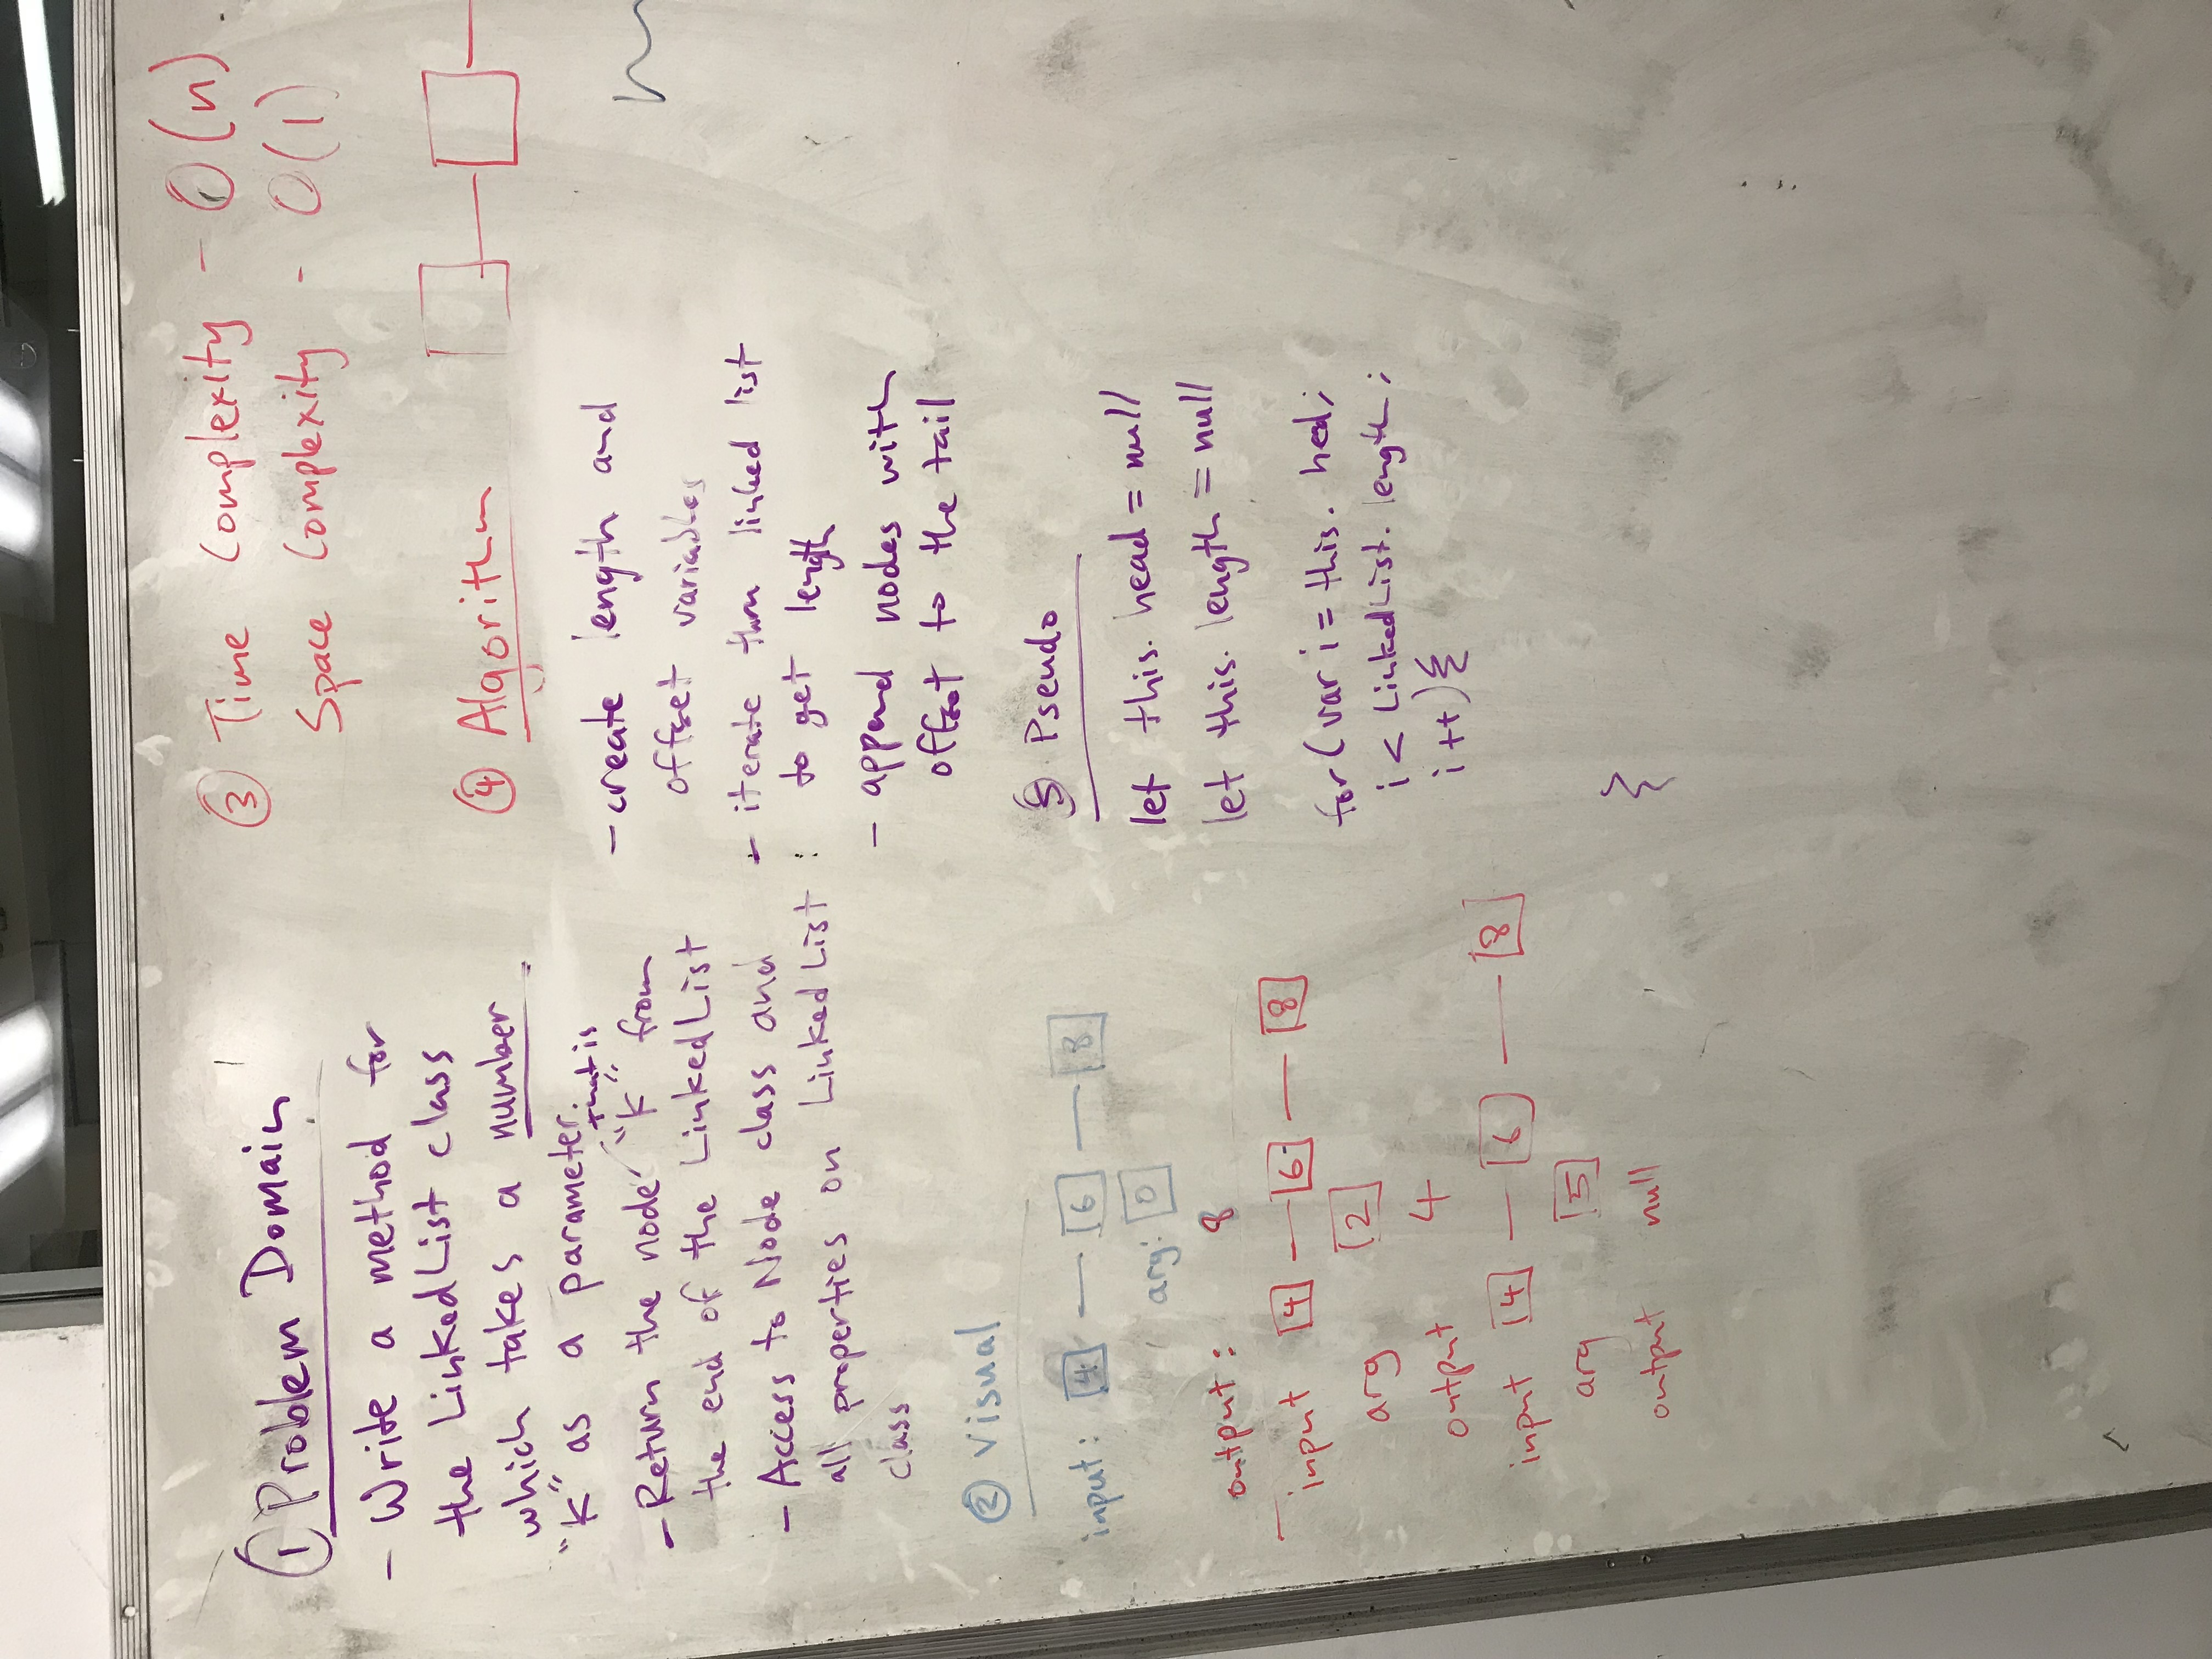 ① Problem Domain
- Write a method for
the LinkedList class
which takes a number
"K" as a parameter.
that is
- Return the node "K" from
the end of the LinkedList
- Access to Node class and
all properties on LinkedList
class
② Visual
input: 4 — 6 — 8
arg: 0
output: 8
input 4 — 6 — 8
arg 2
output 4
input 4 — 6 — 8
arg 5
output null
③ Time Complexity - O(n)
Space Complexity - O(1)
④ Algorithm
- create length and
offset variables
- iterate thru linked list
to get length
- append nodes with
offset to the tail
5 Pseudo
let this. head = null
let this. length = null
for (var i = this. hed;
i < LinkedList. length;
i ++) {
}